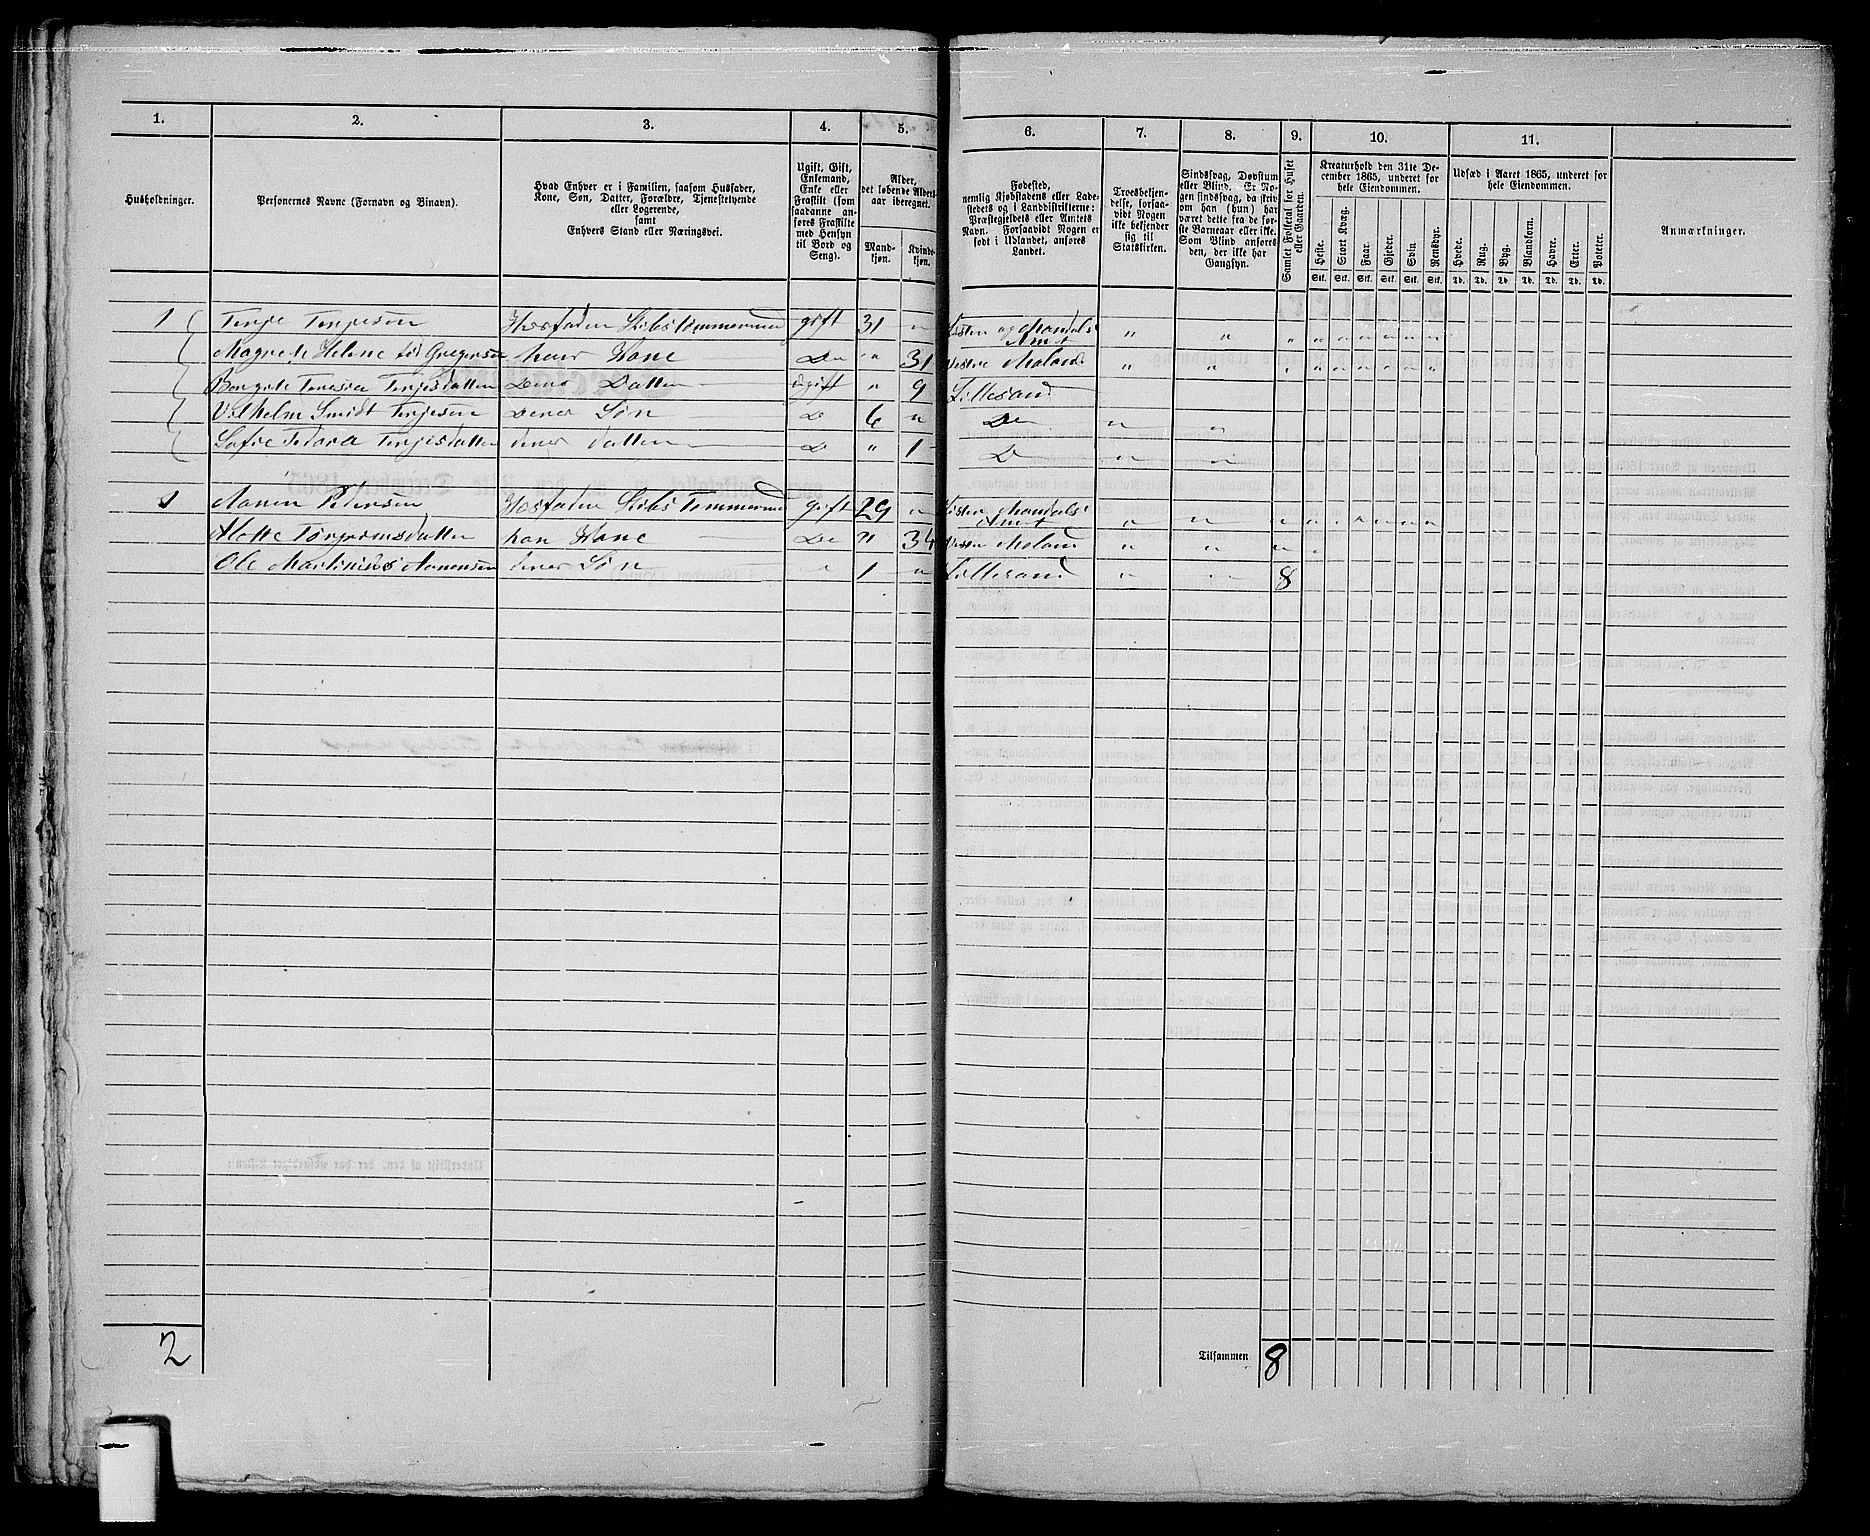 1. 2. 3. 4. 5. 6. 7. 8. 9. 10. 11.
Husholdninger.
Personernes Navne (Fornavn og Binavn).
Hvad Enhver er i Familien, saasom Husfader,
Kone, Søn, Datter, Forældre, Tjenestetyende
eller Logerende,
samt
Enhvers Stand eller Næringsvei.
Ugift, Gift,
Enkemand,
Enke eller
Fraskilt (som
saadanne an-
føres Fraskilte
med Hensyn
til Bord og
Seng).
Alder,
det løbende Alders-
aar iberegnet.
Mand-
kjøn.
Kvinde-
kjøn.
Fødested,
nemlig Kjøbstadens eller Lade-
stedets og i Landdistrikterne:
Præstegjeldets eller Amtets
Navn. Forsaavidt Nogen er
født i Udlandet, anføres
Landet.
Troesbekjen-
delse, forsaa-
vidt Nogen
ikke bekjender
sig til
Statskirken.
Sindssvag, Døvstum
eller Blind. Er No-
gen sindssvag, da skriv
om han (hun) har
været dette fra de før-
ste Barneaar eller ikke.
Som Blind anføres
den, der ikke har
Gangsyn.
Samlet Folketal for Huset
eller Gaarden.
Kreaturhold den 31te De-
cember 1865, underet for
hele Eiendommen.
Heste. Stort Kvæg. Faar. Gjeder. Svin. Rensdyr.
Stk. Stk. Stk. Stk. Stk. Stk.
Udsæd i Aaret 1865, underet for
hele Eiendommen.
Hvede. Rug. Byg. Blandkorn. Havre. Erter. Poteter.
Td. Td. Td. Td. Td. Td. Td.
Anmærkninger.
1 Terje Terjesen Husfader Skibstømmermand gift 31 " Lister og Mandals Amt " " " " " " " " "
Magrete Helene fød Gregersen hans Kone Do " 31 Vestre Moland " " " " " " " "
Terjesdatter Deres Datter ugift " 9 Lillesand
Vilhelm Smidt Terjesen Deres Søn D 6 " Do " "
Sofie Terjesdatter deres datter D " 1 D " "
1 Aanen Petersen Husfader Skibs Tømmermand gift 29 " Lister Mandals Amt " " " " " " " "
hans Kone Do " 34 Vestre Moland " " " "
Ole Martinius Aanensen deres Søn " 1 " Lillesand " " 8
2
Tilsammen 8